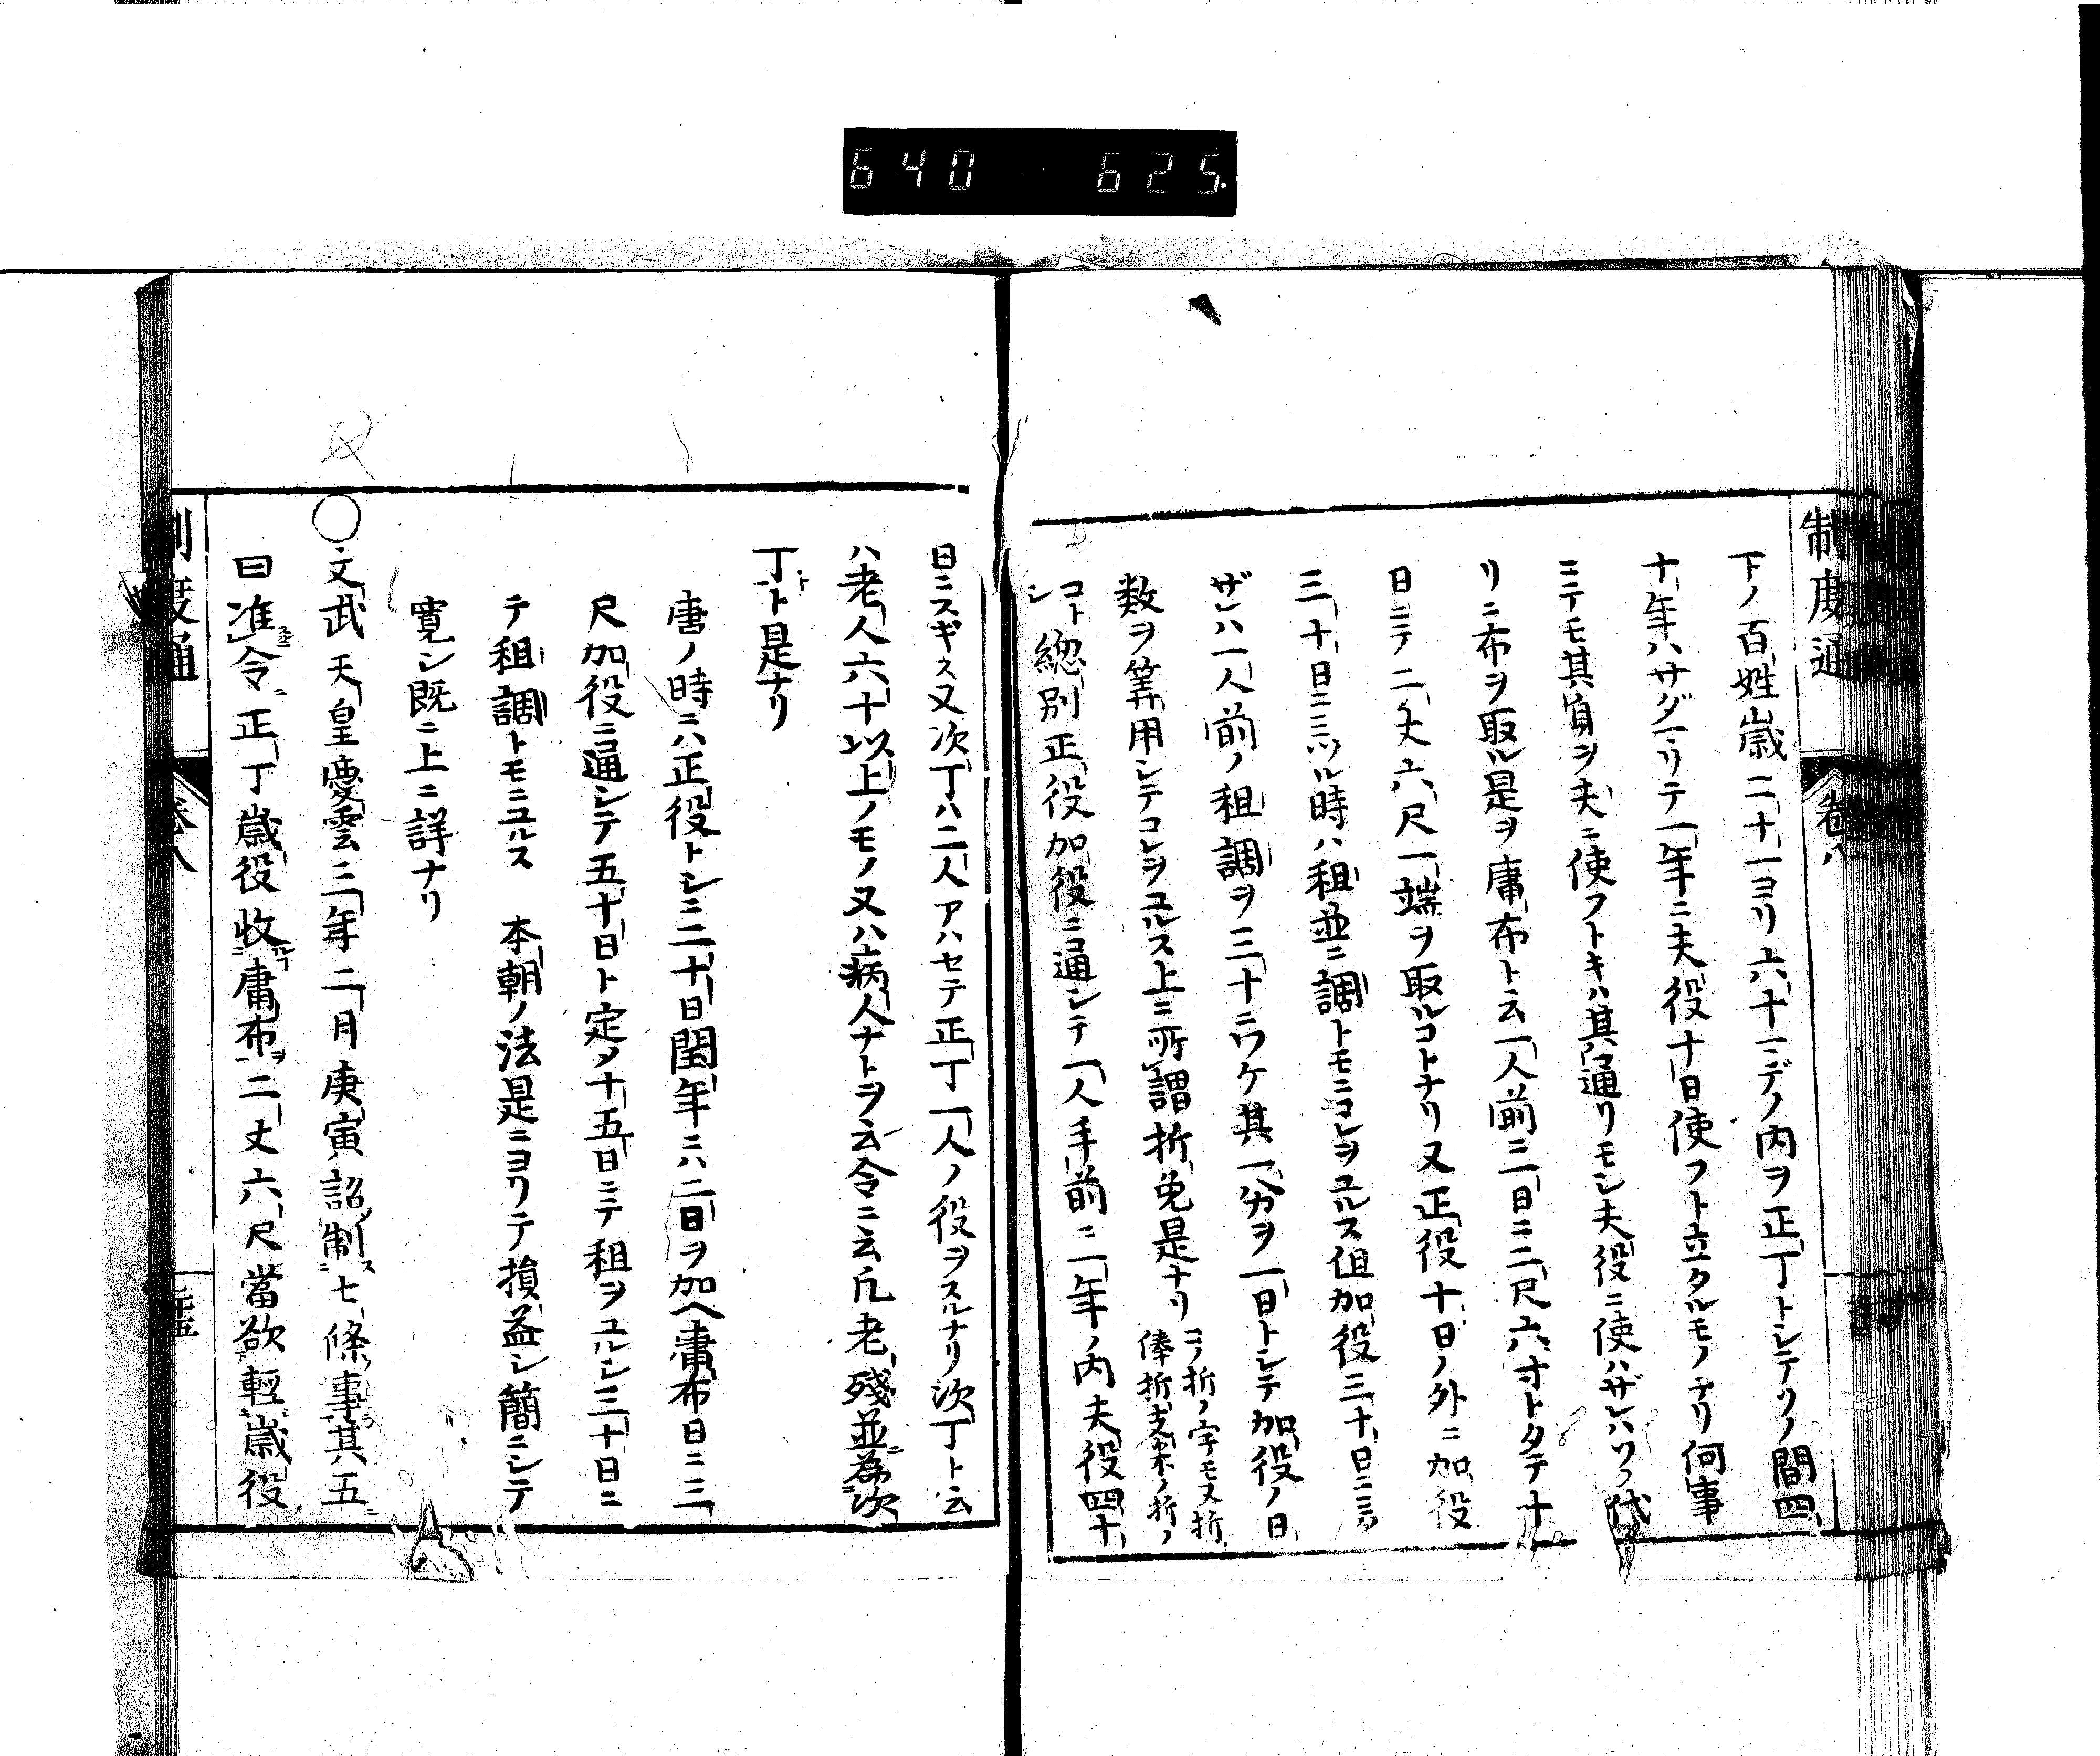 640 625
制度通 卷八
下ノ百姓歳二十一ヨリ六十一デノ内ヲ正丁トシテソノ間四
十年ハサダマリテ一年ニ夫役十日使フト立タルモノナリ何事
ニテモ其負ヲ夫ニ使フトキハ其通リモシ夫役ニ使ハザレハソノ代
リニ布ヲ取ル是ヲ庸布ト云一人前ニ一日ニ二尺六寸トタテ十
日ニテ二丈六尺一端ヲ取ルコトナリ又正役十日ノ外ニ加役
三十日ニミツル時ハ租並ニ調トモニコレヲユルス但加役三十日ニミタ
ザレハ一人前ノ租調ヲ三十ニワケ其一分ヲ一日トシテ加役ノ日
数ヲ筭用シテコレヲユルス上ニ所謂折免是ナリ
コノ折ノ字モ又折
俸折支ノ折ノ
コトシ
總別正役加役ニ通シテ一人手前ニ一年ノ内夫役四十
日ニスギス又次丁ハ二人アハセテ正丁一人ノ役ヲスルナリ次丁ト云
ハ老人六十以上ノモノ又ハ病人ナトヲ云令ニ云凡老殘並為次
丁ト是ナリ
唐ノ時ニハ正役トシニ二十日閏年ニハ二日ヲ加ヘ庸布日ニ三
尺加役ニ通シテ五十日ト定メ十五日ニテ租ヲユルシ三十日ニ
テ租調トモニユルス 本朝ノ法是ニヨリテ損益シ簡ニシテ
寛シ既ニ上ニ詳ナリ
○文武天皇慶雲三年二月庚寅詔制七條事其五
曰准令正丁歳役收庸布二丈六尺當欲輕歳役
制度通 卷八 二十五